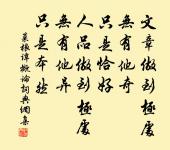 文章做到極處
無有他奇
只是恰好
人品做到極處
無有他异
只是本然
菜根譚概論詞典網集